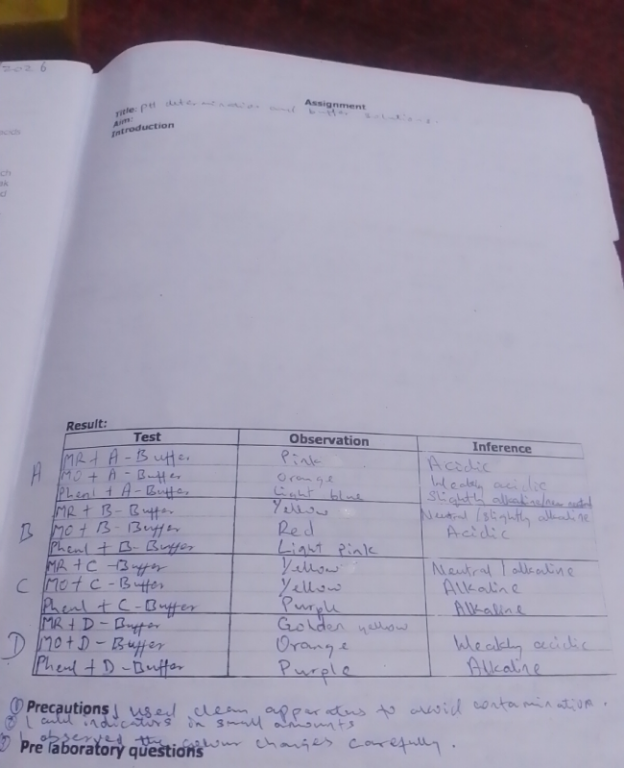 2026
Assignment
Title: PH determination and buffer solutions.
Aim:
Introduction
Result:
Test Observation Inference
A
MR + A - Buffer Pink Acidic
MO + A - Buffer Orange Weakly acidic
Phenl + A - Buffer Light blue Slightly alkaline/near neutral
B
MR + B - Buffer Yellow Neutral / slightly alkaline
MO + B - Buffer Red Acidic
Phenl + B - Buffer Light pink
C
MR + C - Buffer Yellow Neutral / alkaline
MO + C - Buffer Yellow Alkaline
Phenl + C - Buffer Purple Alkaline
D
MR + D - Buffer Golden yellow
MO + D - Buffer Orange Weakly acidic
Phenl + D - Buffer Purple Alkaline
① Precautions I used clean apparatus to avoid contamination.
② I add indicators in small amounts
③ I observed the colour changes carefully.
Pre laboratory questions